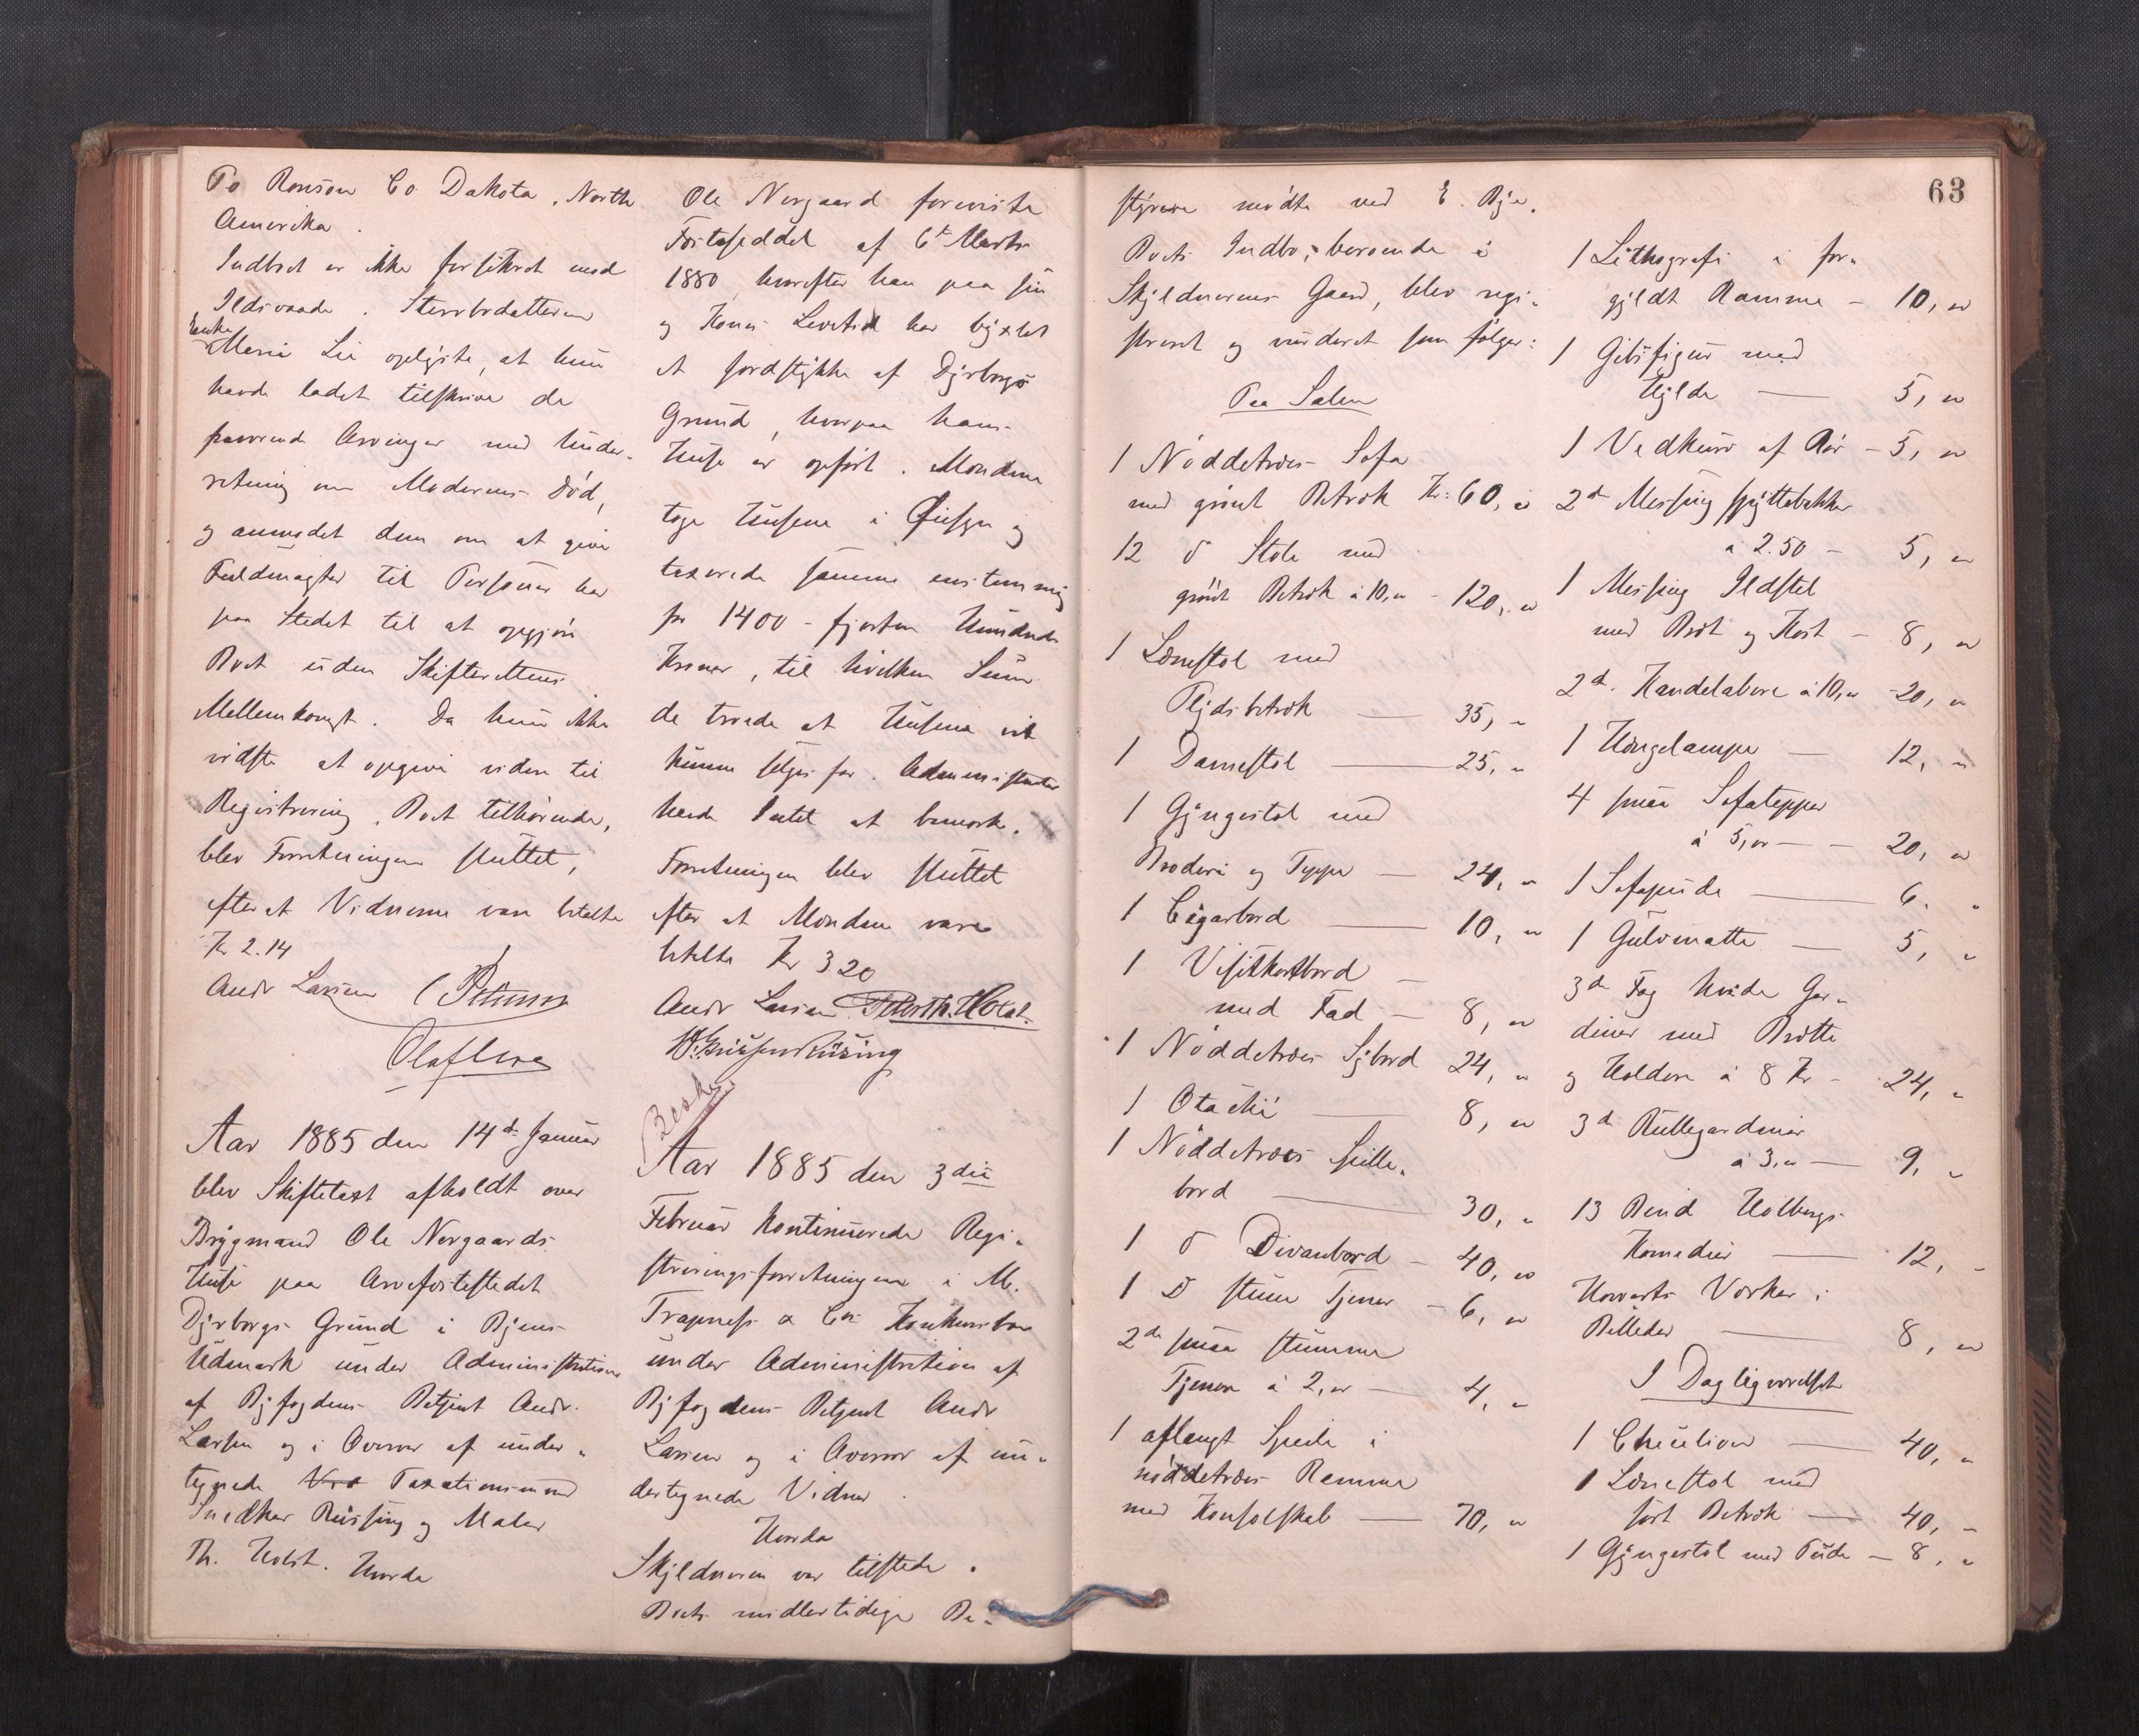 Po Ronson Co Dakota, North
Amerika.
Indboet er ikke forsikret mod
Ildsvaade. Stervbodatteren
Enke
Maria Lie oplyste, at hun
havde ladet tilskrive de
fraværende Arvinger med Under-
retning om Moderens Død,
og anmodet dem om at give
Fuldmagter til Personer her
paa Stedet til at opgjøre
Boet uden Skifterettens
Mellemkomst. Da hun ikke
vidste at opgive videre til
Registrering, Boet tilhørende,
blev Forretningen sluttet,
efterat Vidnerne vare betalte
Kr 2.14
Andr Larsen
Aar 1885 den 14de Januar
blev Skiftetaxt afholdt over
Brygmand Ole Norgaards
Huse paa Arvefæstestedet
Dyrborgs Grund i Byens
Udmark under Administration
af Byfogdens Betjent Andr.
Larsen og i Overvær af under-
tegnede Taxationsmænd
Snedker Rüssing og Maler
Th. Holst. Hvorda
Ole Norgaard foreviste
Fæsteseddel af 6te Marts
1880 hvorefter han paa sin
og Kones Levetid har byxlet
et Jordstykke af Dyrborgs
Grund, hvorpaa hans
Huse er opført. Mændene
toge Husene i Øiesyn og
taxerede samme eenstemmig
for 1400 - fjorten Hundrede
Kroner, til hvilken Sum
de troede at Husene vil
kunne sælges for. Administrator
havde Intet at bemærke.
Forretningen blev sluttet
efter at Mændene vare
betalte Kr 3 20
Andr Larsen Peter Th. Holst.
Besk.
Aar 1885 den 3die
Februar kontinuerede Regi-
streringsforretningen i M.
Trapness & Co Konkursbo
under Administration af
Byfogdens Betjent Andr
Larsen og i Overvær af un-
dertegnede Vidner
Hvorda
Skyldneren var tilstede.
Boets midlertidige Be-
63
styrere mødte ved E. Bye.
Boets Indbo, beroende i
Skyldnerens Gaard, blev regi-
streret og vurderet som følger:
Paa Salen
1 Nøddetræes Sofa
med grønt Betræk Kr. 60, "
12 d Stole med
grønt Betræk à 10, " - 120, "
1 Lænestol med
Plydsbetræk — 35, "
1 Damestol — 25, "
1 Gyngestol med
Broderi og Teppe — 24, "
1 Cigarbord — 10, "
1 Visitkortbord
med Fad — 8, "
1 Nøddetræes Sybord 24, "
1 Otachi — 8, "
1 Nøddetræes Spille-
bord — 30, "
1 d Divanbord — 40, "
1 d stum Tjener — 6, "
2de smaa stumme
Tjenere à 2, " — 4, "
1 aflangt Speile i
nøddetræes Ramme
med Konsolskab — 70, "
1 Lithografi i for-
gyldt Ramme — 10, "
1 Gibsfigur med
Hylde — 5, "
1 Vedkurv af Rør — 5, "
2de Messing Spyttebakker
à 2.50 — 5, "
1 Messing Ildstel
med Bræt og Kost — 8, "
2de Kandelabere à 10, " - 20, "
1 Hængelampe — 12, "
4 smaa Sofatepper
à 5, " — 20, "
1 Sofapude — 6. "
1 Gulvmatte — 5, "
3de Fag hvide Gar-
diner med Brætte
og Holdere à 8 Kr — 24, "
3de Rullegardiner
à 3, " — 9, "
13 Bind Holbergs
Komedier — 12, "
Howarts Værker i
Billeder — 8, "
I Dagligværelset
1 Cheselion — 40, "
1 Lænestol med
sort Betræk — 40, "
1 Gyngestol med Pude — 8, "